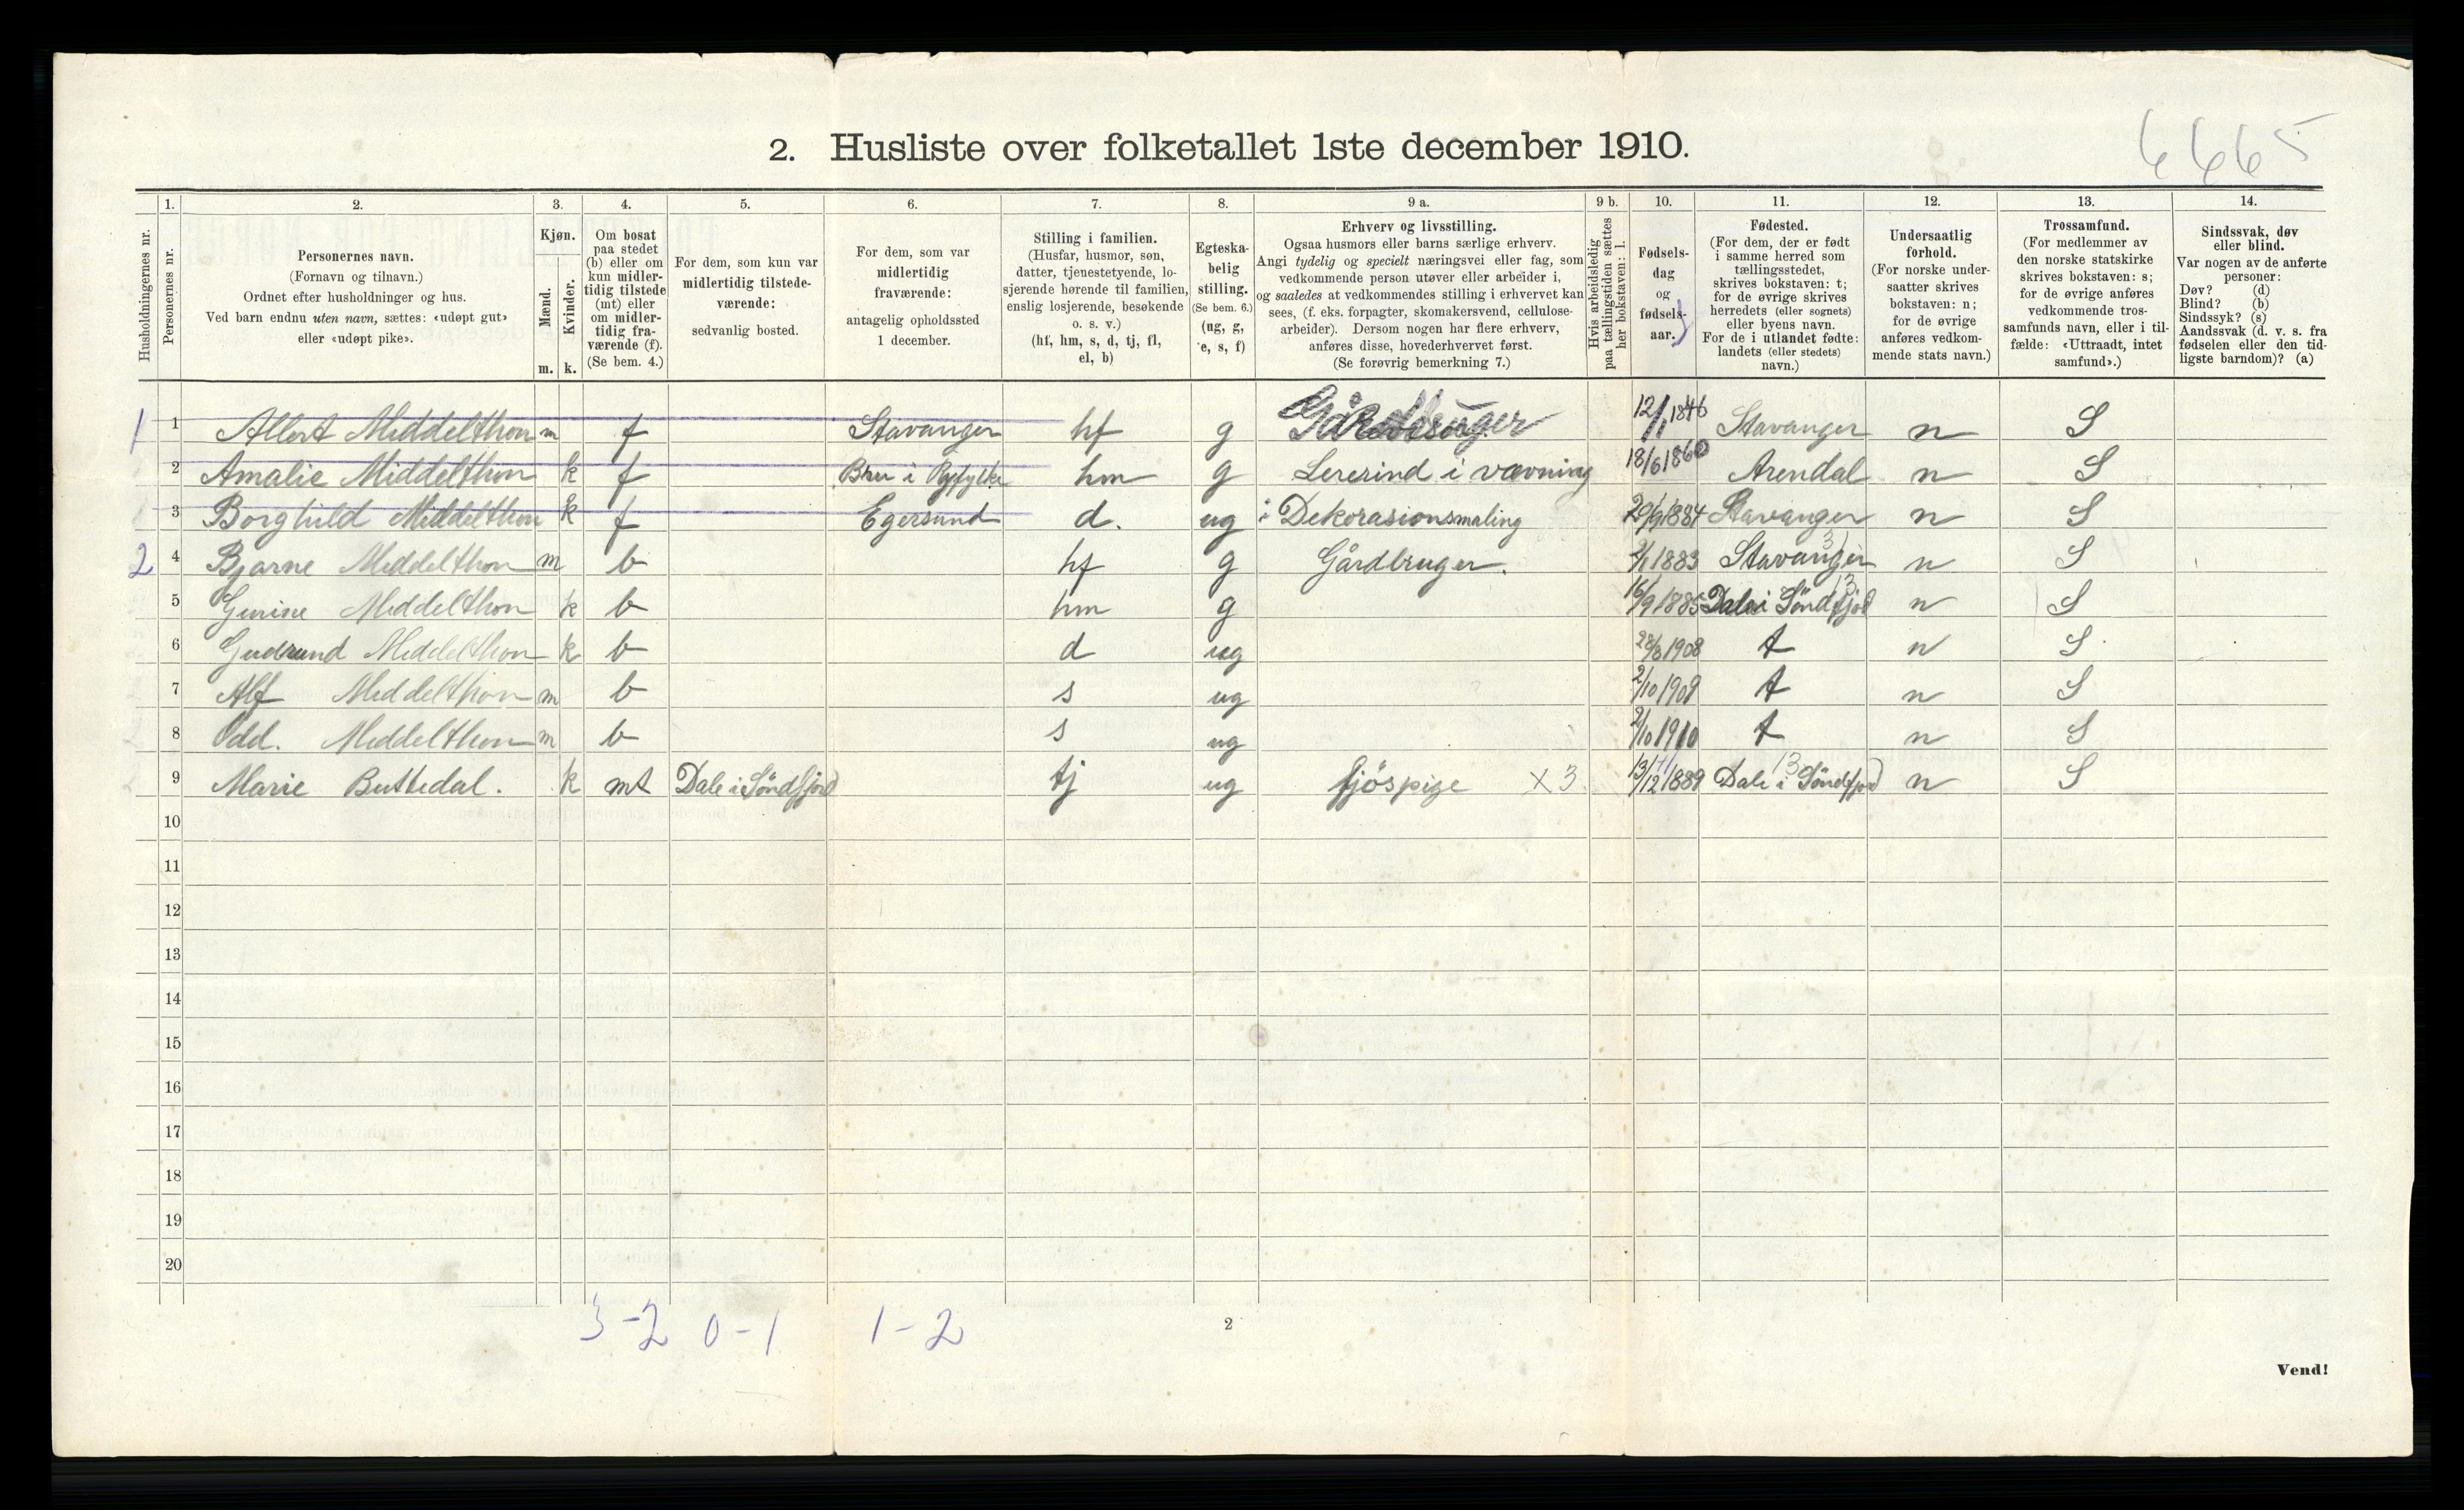 6665
2. Husliste over folketallet 1ste december 1910.
Husholdningernes nr.
1.
Personernes nr.
2.
Personernes navn.
(Fornavn og tilnavn.)
Ordnet efter husholdninger og hus.
Ved barn endnu uten navn, sættes: «udøpt gut»
eller «udøpt pike».
3.
Kjøn.
Mænd.
Kvinder.
m. k.
4.
Om bosat
paa stedet
(b) eller om
kun midler-
tidig tilstede
(mt) eller
om midler-
tidig fra-
værende (f).
(Se bem. 4.)
5.
For dem, som kun var
midlertidig tilstede-
værende:
sedvanlig bosted.
6.
For dem, som var
midlertidig
fraværende:
antagelig opholdssted
1 december.
7.
Stilling i familien.
(Husfar, husmor, søn,
datter, tjenestetyende, lo-
sjerende hørende til familien,
enslig losjerende, besøkende
o. s. v.)
(hf, hm, s, d, tj, fl,
el, b)
8.
Egteska-
belig
stilling.
(Se bem. 6.)
(ug, g,
e, s, f)
9 a.
Erhverv og livsstilling.
Ogsaa husmors eller barns særlige erhverv.
Angi tydelig og specielt næringsvei eller fag, som
vedkommende person utøver eller arbeider i,
og saaledes at vedkommendes stilling i erhvervet kan
sees, (f. eks. forpagter, skomakersvend, cellulose-
arbeider). Dersom nogen har flere erhverv,
anføres disse, hovederhvervet først.
(Se forøvrig bemerkning 7.)
9 b.
Hvis arbeidsledig
paa tællingstiden sættes
her bokstaven: l.
10.
Fødsels-
dag
og
fødsels-
aar.
11.
Fødested.
(For dem, der er født
i samme herred som
tællingsstedet,
skrives bokstaven: t;
for de øvrige skrives
herredets (eller sognets)
eller byens navn.
For de i utlandet fødte:
landets (eller stedets)
navn.)
12.
Undersaatlig
forhold.
(For norske under-
saatter skrives
bokstaven: n;
for de øvrige
anføres vedkom-
mende stats navn.)
13.
Trossamfund.
(For medlemmer av
den norske statskirke
skrives bokstaven: s;
for de øvrige anføres
vedkommende tros-
samfunds navn, eller i til-
fælde: «Uttraadt, intet
samfund».)
14.
Sindssvak, døv
eller blind.
Var nogen av de anførte
personer:
Døv? (d)
Blind? (b)
Sindssyk? (s)
Aandssvak (d. v. s. fra
fødselen eller den tid-
ligste barndom)? (a)
1 1 Allert Middelthon m f Stavanger hf g Gårdbruger 12/1 1846 Stavanger n S
2 Amalie Middelthon k f Bru i Ryfylke hm g Lererind i vævning 18/6 1860 Arendal n S
3 Borghild Middelthon k f Egersund d. ug i Dekorasionsmaling 20/9 1884 Stavanger n S
2 4 Bjarne Middelthon m b hf g Gårdbruger. 1883 Stavanger n S
5 Gurine Middelthon k b hm g 16/9 1885 Dale i Söndfjord n S
6 Gudrund Middelthon k b d ug 28/8 1908 t n S
7 Alf Middelthon m b s ug 2/10 1909 t n S
8 Odd. Middelthon m b s ug 2/10 1910 t n S
9 Marie Buttedal. k mt Dale i Söndfjord tj ug fjöspige X 3 13/12 1889 Dale i Söndfjord n S
10
11
12
13
14
15
16
17
18
19
20
3-2 0-1 1-2
2
Vend!